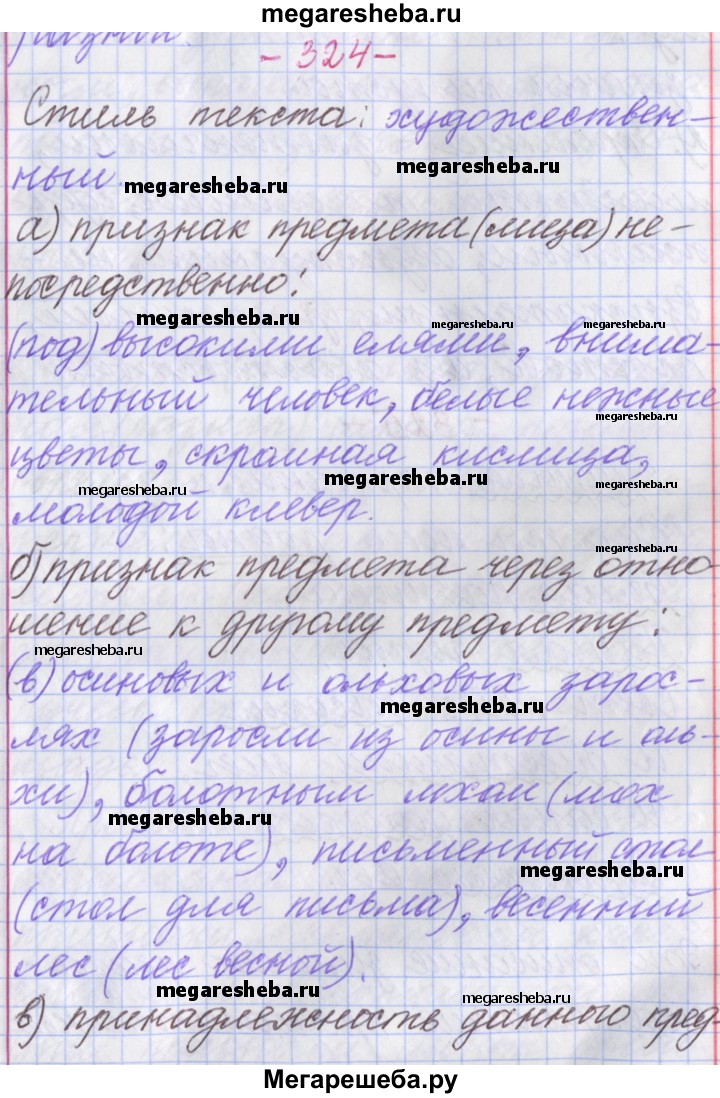 megaresheba.ru
- 324 -
Стиль текста: художествен-
ный.
megaresheba.ru
а) признак предмета (лица) не-
посредственно:
megaresheba.ru
megaresheba.ru
megaresheba.ru
(под) высокими елями, внима-
тельный человек, белые нежные
megaresheba.ru
цветы, скромная кислица,
megaresheba.ru
megaresheba.ru
молодой клевер.
megaresheba.ru
б) признак предмета через отно-
шение к другому предмету:
megaresheba.ru
(в) осиновых и ольховых зарос-
megaresheba.ru
лях (заросли из осины и оль-
хи), болотным мхом (мох
megaresheba.ru
на болоте), письменный стол
megaresheba.ru
(стол для письма), весенний
лес (лес весной).
megaresheba.ru
megaresheba.ru
в) принадлежность данного пред-
Мегарешеба.ру